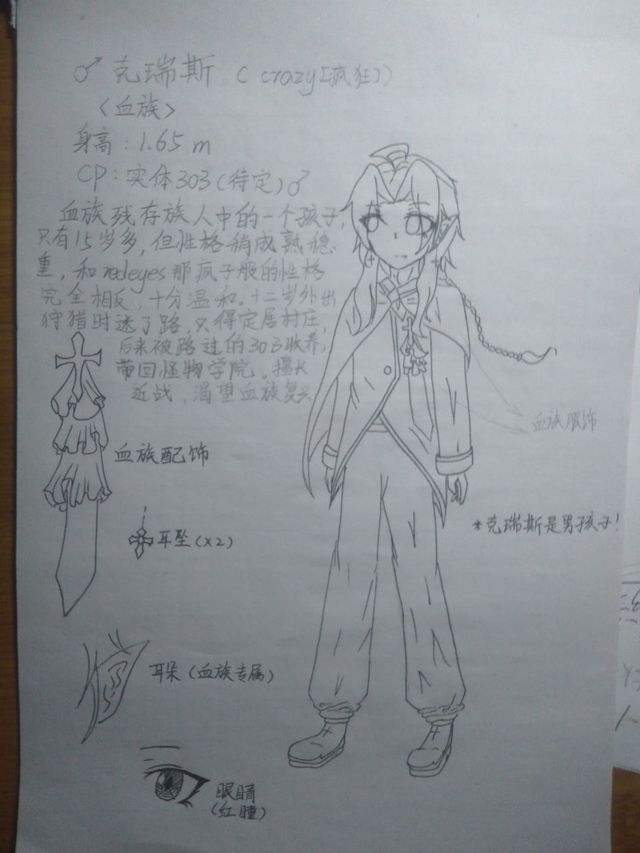 ♂ 克瑞斯 ( crazy[疯狂])
<血族>
身高:1.65 m
CP:实体303(待定)♂
血族残存族人中的一个孩子,
只有15岁多,但性格稍成熟稳
重,和redeyes那疯子般的性格
完全相反,十分温和。十二岁外出
狩猎时迷了路,只得定居村庄,
后来被路过的303收养,
带回怪物学院。擅长
近战,渴望血族复兴
血族服饰
血族配饰
*克瑞斯是男孩子!
耳坠(x2)
耳朵(血族专属)
眼睛
(红瞳)